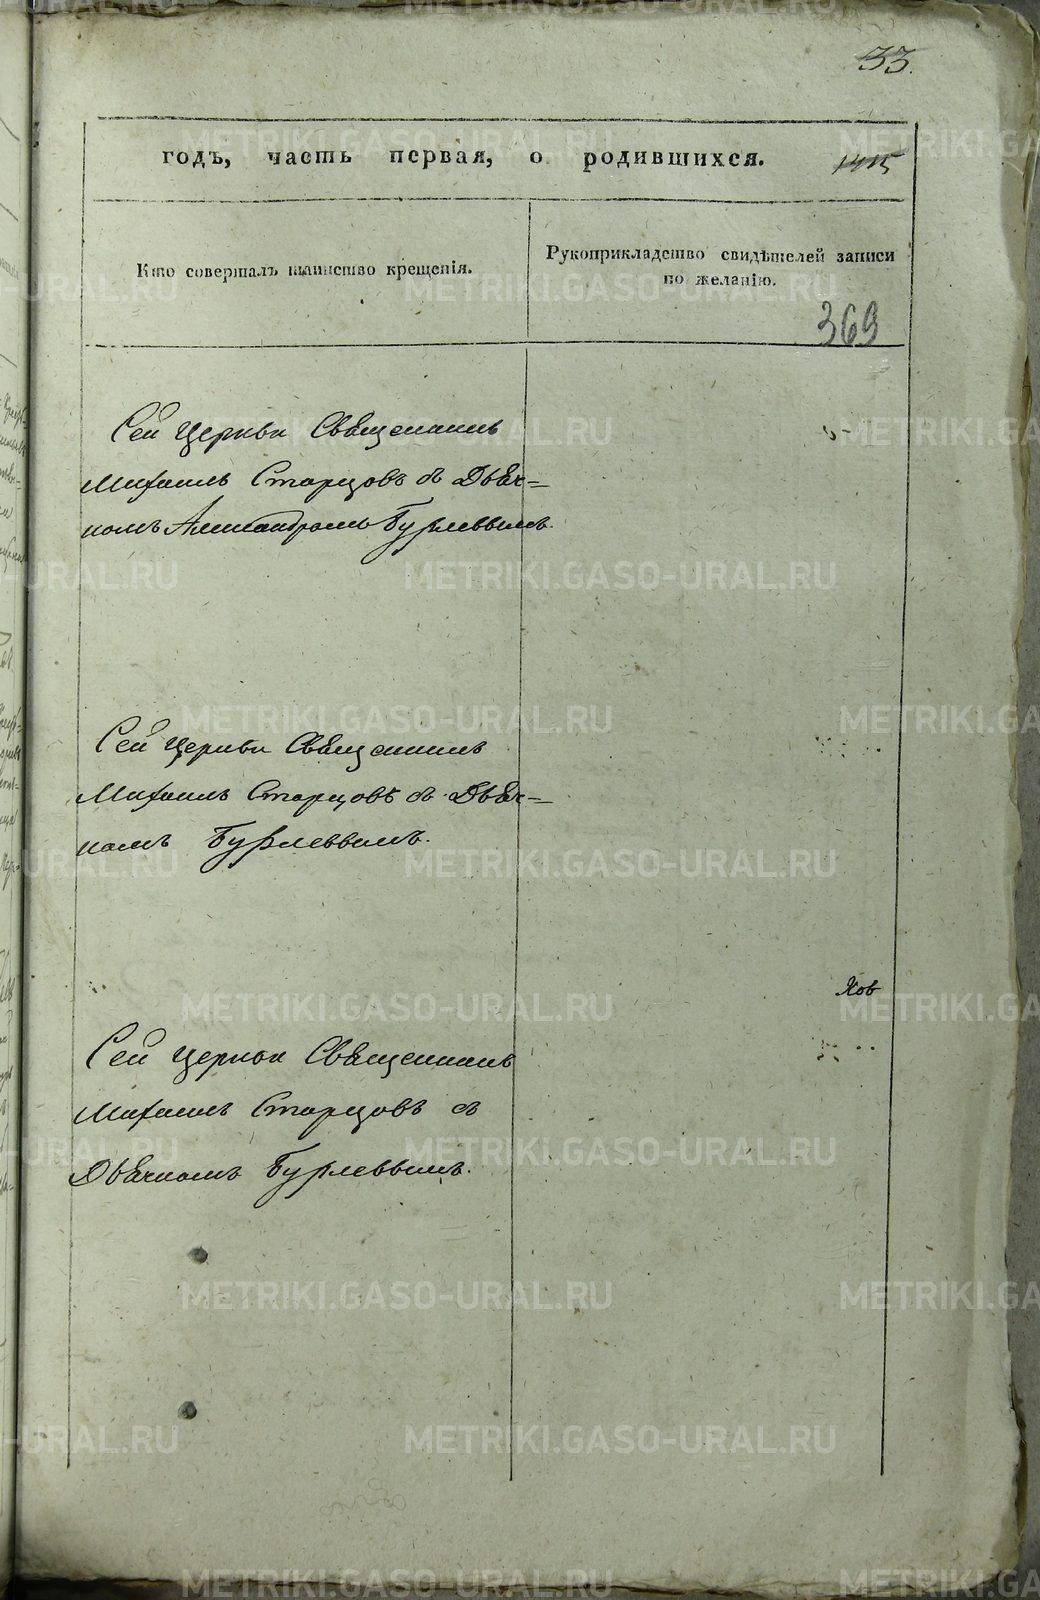 33.
годъ, часть первая, о родившихся. 1415
Кто совершалъ таинство крещенія.
Рукоприкладство свидѣтелей записи
по желанію.
369
Сей Церкви Священникъ
Михаилъ Старцовъ съ Дьяч=
комъ Александромъ Бурлеввымъ.
Сей Церкви Священникъ
Михаилъ Старцовъ съ Дьяч=
комъ Бурлеввымъ.
Хов
Сей Церкви Священникъ
Михаилъ Старцовъ съ
Дьячкомъ Бурлеввымъ.
METRIKI.GASO-URAL.RU